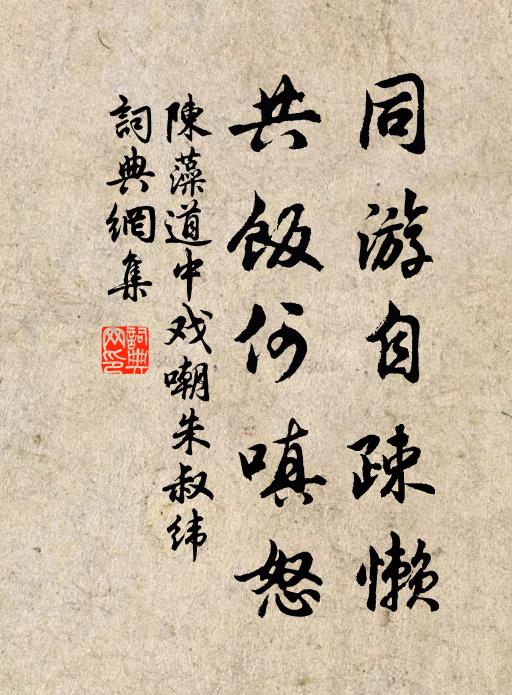 同游自疎懒
共飯何嗔怒
陳藻道中戏嘲朱叔纬
詞典網集
詞典网印